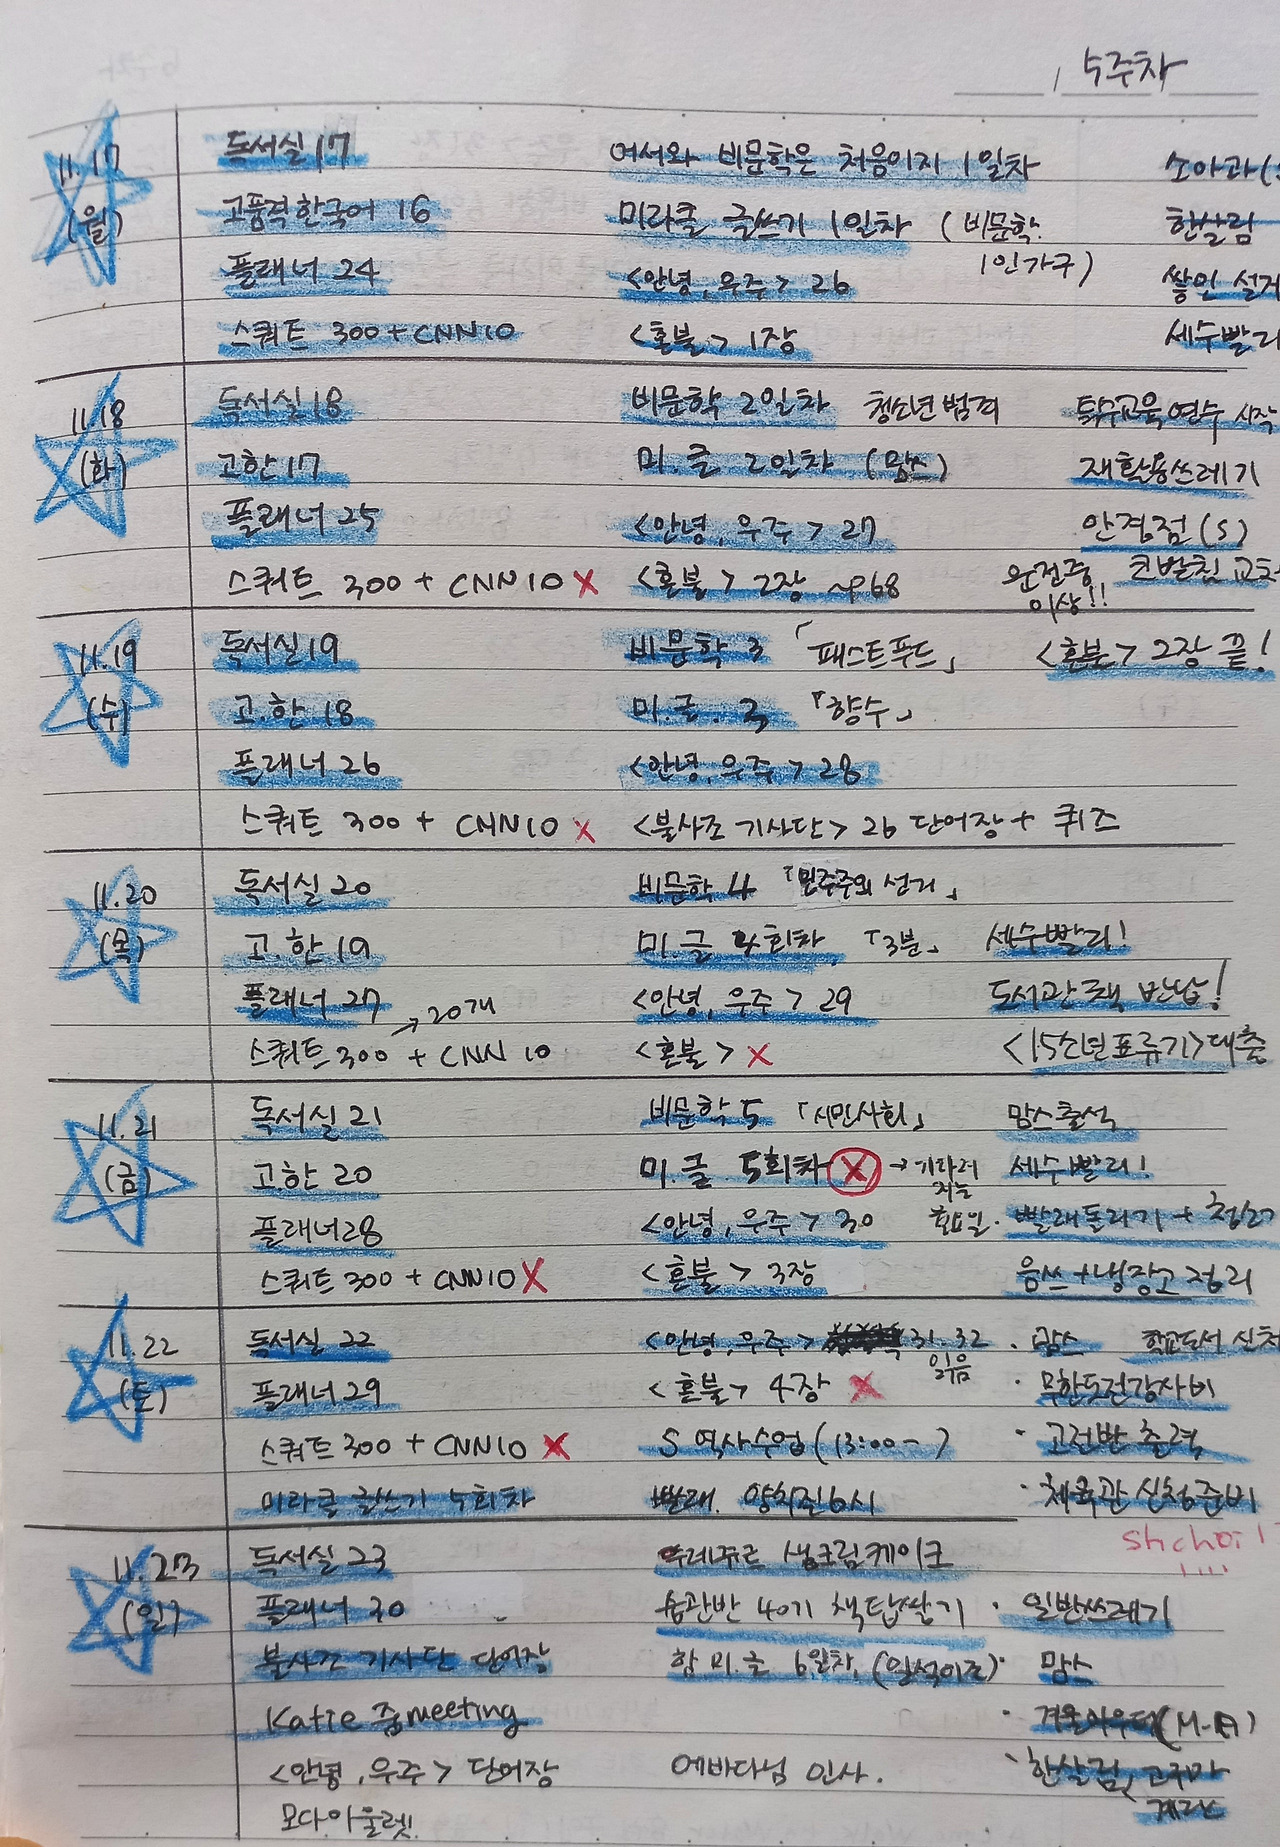 5주차
11.17 (월)
독서실 17 어서와 비문학은 처음이지 1일차 소아과(
고품격한국어 16 미라클 글쓰기 1일차 (비문학. 1인가구) 한살림
플래너 24 <안녕, 우주> 26 쌓인 설거
스쿼트 300 + CNN10 <혼불> 1장 세수빨리
11.18 (화)
독서실 18 비문학 2일차 청소년 범죄 특수교육연수 시작
고한 17 미.글 2일차 (맘쓰) 재활용쓰레기
플래너 25 <안녕, 우주> 27 안경점 (S)
스쿼트 300 + CNN10 X <혼불> 2장 ~p68 운전중 이상!! 코받침 교체
11.19 (수)
독서실 19 비문학 3 「패스트푸드」 <혼불> 2장 끝!
고.한 18 미.글. 3 「향수」
플래너 26 <안녕, 우주> 28
스쿼트 300 + CNN10 X <불사조 기사단> 26 단어장 + 퀴즈
11.20 (목)
독서실 20 비문학 4 「민주주의 선거」
고.한 19 미.글 4회차 「3분」 세수빨리!
플래너 27 <안녕, 우주> 29 도서관 책 반납!
스쿼트 300 → 20개 + CNN 10 <혼불> X <15소년표류기> 대출
11.21 (금)
독서실 21 비문학 5 「시민사회」 맘스출석
고.한 20 미.글 5회차 X → 세수빨리!
플래너 28 <안녕, 우주> 30 빨래돌리기 + 청소
스쿼트 300 + CNN10 X <혼불> 3장 음쓰 + 냉장고 정리
11.22 (토)
독서실 22 <안녕, 우주> 31. 32 읽음 · 맘스 학교도서 신청
플래너 29 <혼불> 4장 X · 무한도전강사비
스쿼트 300 + CNN10 X S 역사수업 (13:00~ ) · 고전반 출력
미라클 글쓰기 5회차 빨래. 양치질 6시 · 체육관 신청준비
shchoi1
11.23 (일)
독서실 23 뚜레쥬르 생크림케이크
플래너 30 습관반 40기 책탑쌓기 · 일반쓰레기
불사조 기사단 단어장 함 미.글 6일차, (일석이조) · 맘스
Katie 줌meeting · 겨울아우터 (M-A)
<안녕, 우주> 단어장 에바다님 인사. · 한살림, 고구마 계란
모다아울렛